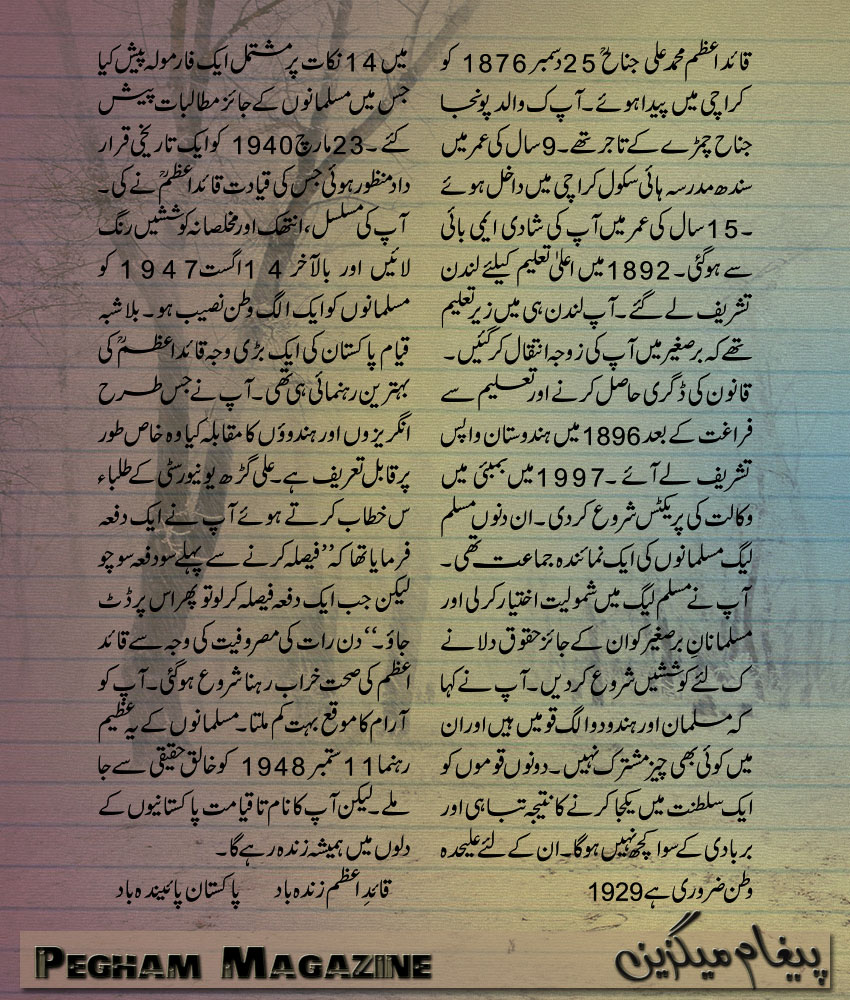 قائداعظم محمد علی جناحؒ 25 دسمبر 1876 کو
کراچی میں پیدا ہوئے۔ آپ ک والد پونجا
جناح چمڑے کے تاجر تھے۔ 9 سال کی عمر میں
سندھ مدرسہ ہائی سکول کراچی میں داخل ہوئے
۔ 15 سال کی عمر میں آپ کی شادی ایمی بائی
سے ہوگئی۔ 1892 میں اعلیٰ تعلیم کیلئے لندن
تشریف لے گئے۔ آپ لندن ہی میں زیر تعلیم
تھے کہ برصغیر میں آپ کی زوجہ انتقال کر گئیں۔
قانون کی ڈگری حاصل کرنے اور تعلیم سے
فراغت کے بعد 1896 میں ہندوستان واپس
تشریف لے آئے۔ 1997 میں بمبئی میں
وکالت کی پریکٹس شروع کردی۔ ان دنوں مسلم
لیگ مسلمانوں کی ایک نمائندہ جماعت تھی۔
آپ نے مسلم لیگ میں شمولیت اختیار کرلی اور
مسلمانانِ برصغیر کو ان کے جائز حقوق دلانے
ک لئے کوششیں شروع کردیں۔ آپ نے کہا
کہ مسلمان اور ہندو دو الگ قومیں ہیں اور ان
میں کوئی بھی چیز مشترک نہیں۔ دونوں قوموں کو
ایک سلطنت میں یکجا کرنے کا نتیجہ تباہی اور
بربادی کے سوا کچھ نہیں ہوگا۔ ان کے لئے علیحدہ
وطن ضروری ہے 1929
میں 14 نکات پر مشتمل ایک فارمولہ پیش کیا
جس میں مسلمانوں کے جائز مطالبات پیش
کئے۔ 23 مارچ 1940 کو ایک تاریخی قرار
داد منظور ہوئی جس کی قیادت قائداعظمؒ نے کی۔
آپ کی مسلسل، انتھک اور مخلصانہ کوششیں رنگ
لائیں اور بالآخر 14 اگست 1947 کو
مسلمانوں کو ایک الگ وطن نصیب ہو۔ بلاشبہ
قیام پاکستان کی ایک بڑی وجہ قائداعظمؒ کی
بہترین رہنمائی ہی تھی۔ آپ نے جس طرح
انگریزوں اور ہندوؤں کا مقابلہ کیا وہ خاص طور
پر قابل تعریف ہے۔ علی گڑھ یونیورسٹی کے طلباء
س خطاب کرتے ہوئے آپ نے ایک دفعہ
فرمایا تھا کہ ’’فیصلہ کرنے سے پہلے سو دفعہ سوچو
لیکن جب ایک دفعہ فیصلہ کرلو تو پھر اس پر ڈٹ
جاؤ۔‘‘ دن رات کی مصروفیت کی وجہ سے قائد
اعظم کی صحت خراب رہنا شروع ہوگئی۔ آپ کو
آرام کا موقع بہت کم ملتا۔ مسلمانوں کے یہ عظیم
رہنما 11 ستمبر 1948 کو خالق حقیقی سے جا
ملے۔ لیکن آپ کا نام تا قیامت پاکستانیوں کے
دلوں میں ہمیشہ زندہ رہے گا۔
قائدِ اعظم زندہ باد پاکستان پائیندہ باد
پیغام میگزین
PEGHAM MAGAZINE